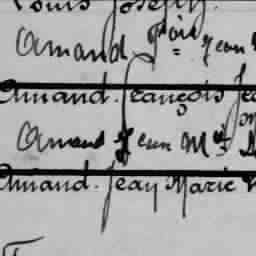 Louis Joseph.
Amand fois Jean
Amand. François Je
Amand Jean Mie
Amand. Jean Marie